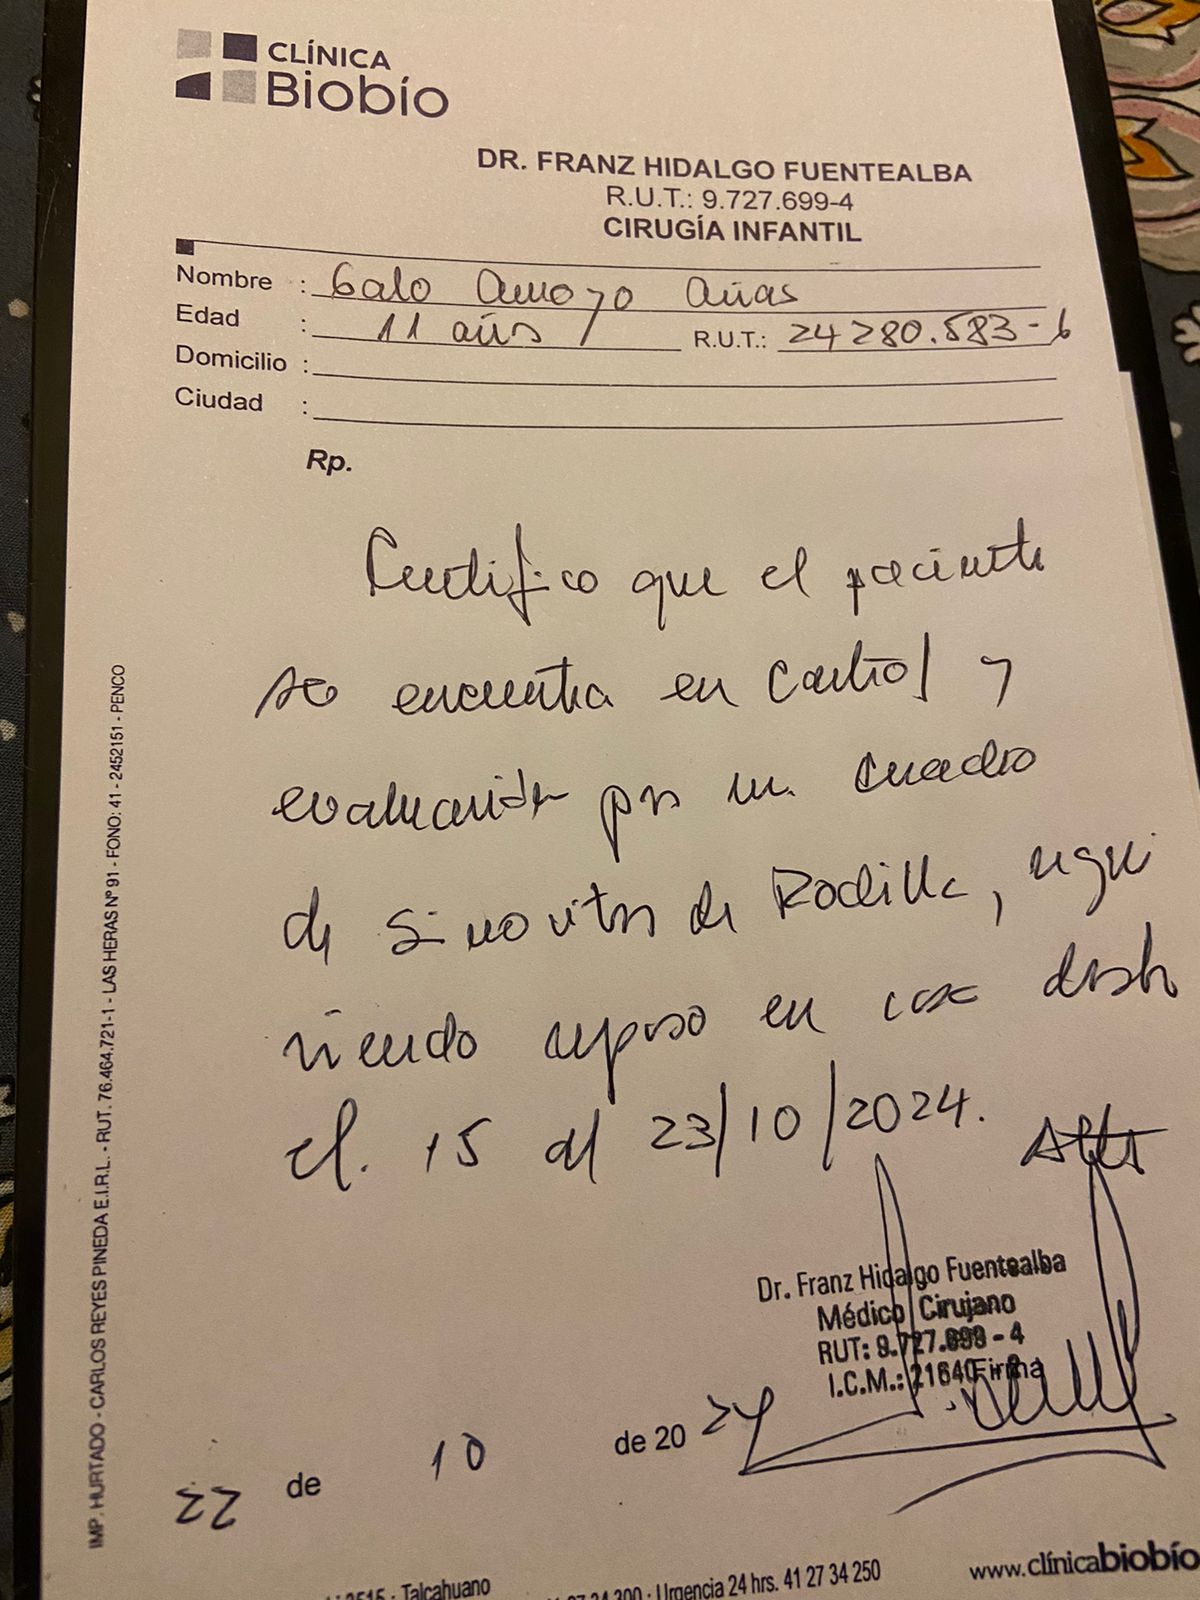 CLÍNICA
Biobío
DR. FRANZ HIDALGO FUENTEALBA
R.U.T.: 9.727.699-4
CIRUGÍA INFANTIL
Nombre : Galo Arroyo
Edad : 11 años R.U.T.: 24280.583-6
Domicilio :
Ciudad :
Rp.
Certifico que el paciente
se encuentra en control y
evaluación por un cuadro
de Sinovitis de Rodilla, requi
riendo reposo en casa desde
el. 15 al 23/10/2024.
Dr. Franz Hidalgo Fuentealba
Médico Cirujano
RUT: 9.727.699 - 4
I.C.M.: 21640 Firma
22 de 10 de 2024
IMP. HURTADO - CARLOS REYES PINEDA E.I.R.L. - RUT. 76.464.721-1 - LAS HERAS Nº 91 - FONO: 41 - 2452151 - PENCO
3515 - Talcahuano
Urgencia 24 hrs. 41 27 34 250
www.clínicabiobío